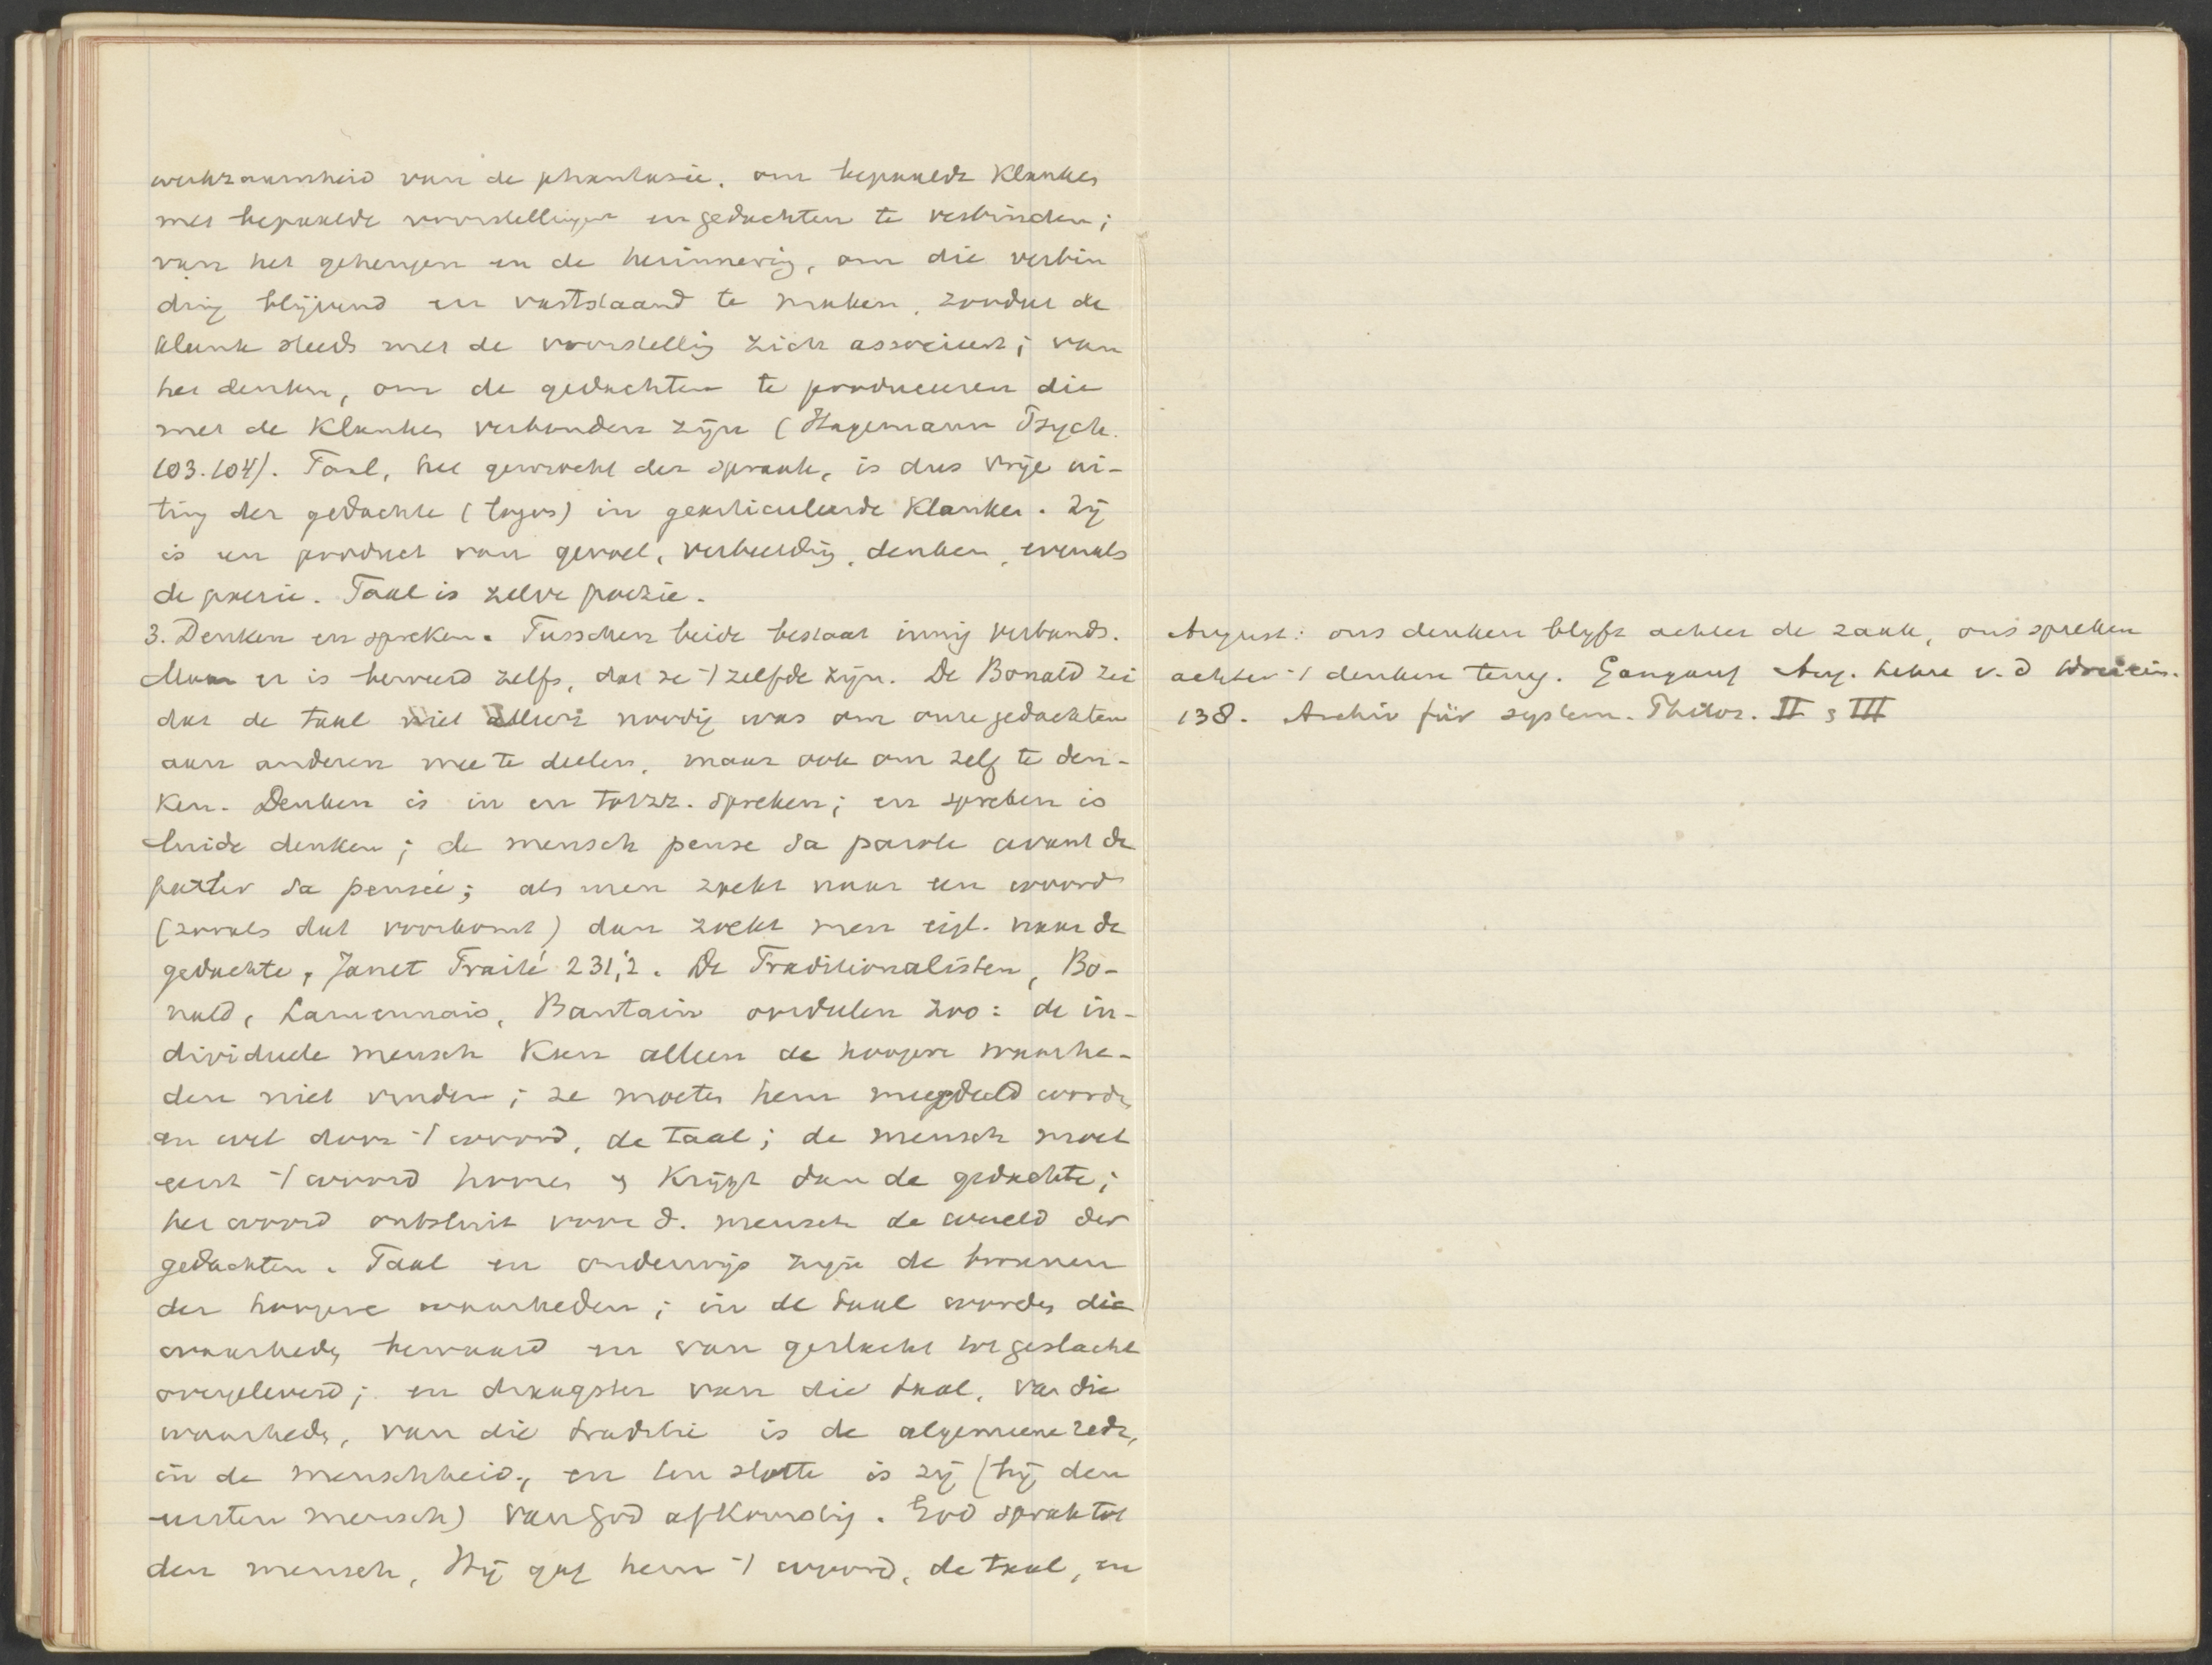 werkzaamheid van de phantasie, om bepaalde klanken
met bepaalde voorstellingen en gedachten te verbinden;
van het geheugen en de herinnering, om die verbin
ding blijvend en vaststaand te maken, zoodat de
klank steeds met de voorstelling zich associeert; van
het denken, om de gedachten te produceeren die
met de klanken verbonden zijn (Hagemann Psych.
103.104). Taal, het gewrocht der spraak, is dus vrije ui-
ting der gedachte (logos) in gearticuleerde klanken. Zij
is een product van gevoel, verbeelding, denken, evenals
de poezie. Taal is zelve poezie.
3. Denken en spreken. Tusschen beide bestaat innig verband.
Maar er is beweerd zelfs, dat ze 't zelfde zijn. De Bonald zei
dat de taal niet alleen noodig was om onze gedachten
aan anderen mee te deelen, maar ook om zelf te den-
ken. Denken is in en tot zz. spreken; en spreken is
luide denken; de mensch pense sa parole avant de
parler sa pensée; als men zoekt naar een woord
(zooals dat voorkomt) dan zoekt men eigl. naar de
gedachte, Janet Traité 231,2. De Traditionalisten, Bo-
nald, Lamennais, Bautain oordeelen zoo: de in-
dividueele mensch kan alleen de hoogere waarhe-
den niet vinden; ze moeten hem meegedeeld worden
en wel door 't woord, de taal; de mensch moet
eerst 't woord hooren & krijgt dan de gedachte;
het woord ontsluit voor d. mensch de wereld der
gedachten. Taal en onderwijs zijn de bronnen
der hoogere waarheden; in de taal worden die
waarheden bewaard en van geslacht tot geslacht
overgeleverd; en draagster van die taal, van die
waarheden, van die traditie is de algemeene rede,
in de menschheid, en ten slotte is zij (bij den
eersten mensch) van God afkomstig. God sprak tot
den mensch, Hij gaf hem 't woord, de taal, en
August: ons denken blijft achter de zaak, ons spreken
achter 't denken terug. Gangauf Aug. Lehre v. d Dreiein.
138. Archiv für system. Philos. II & III